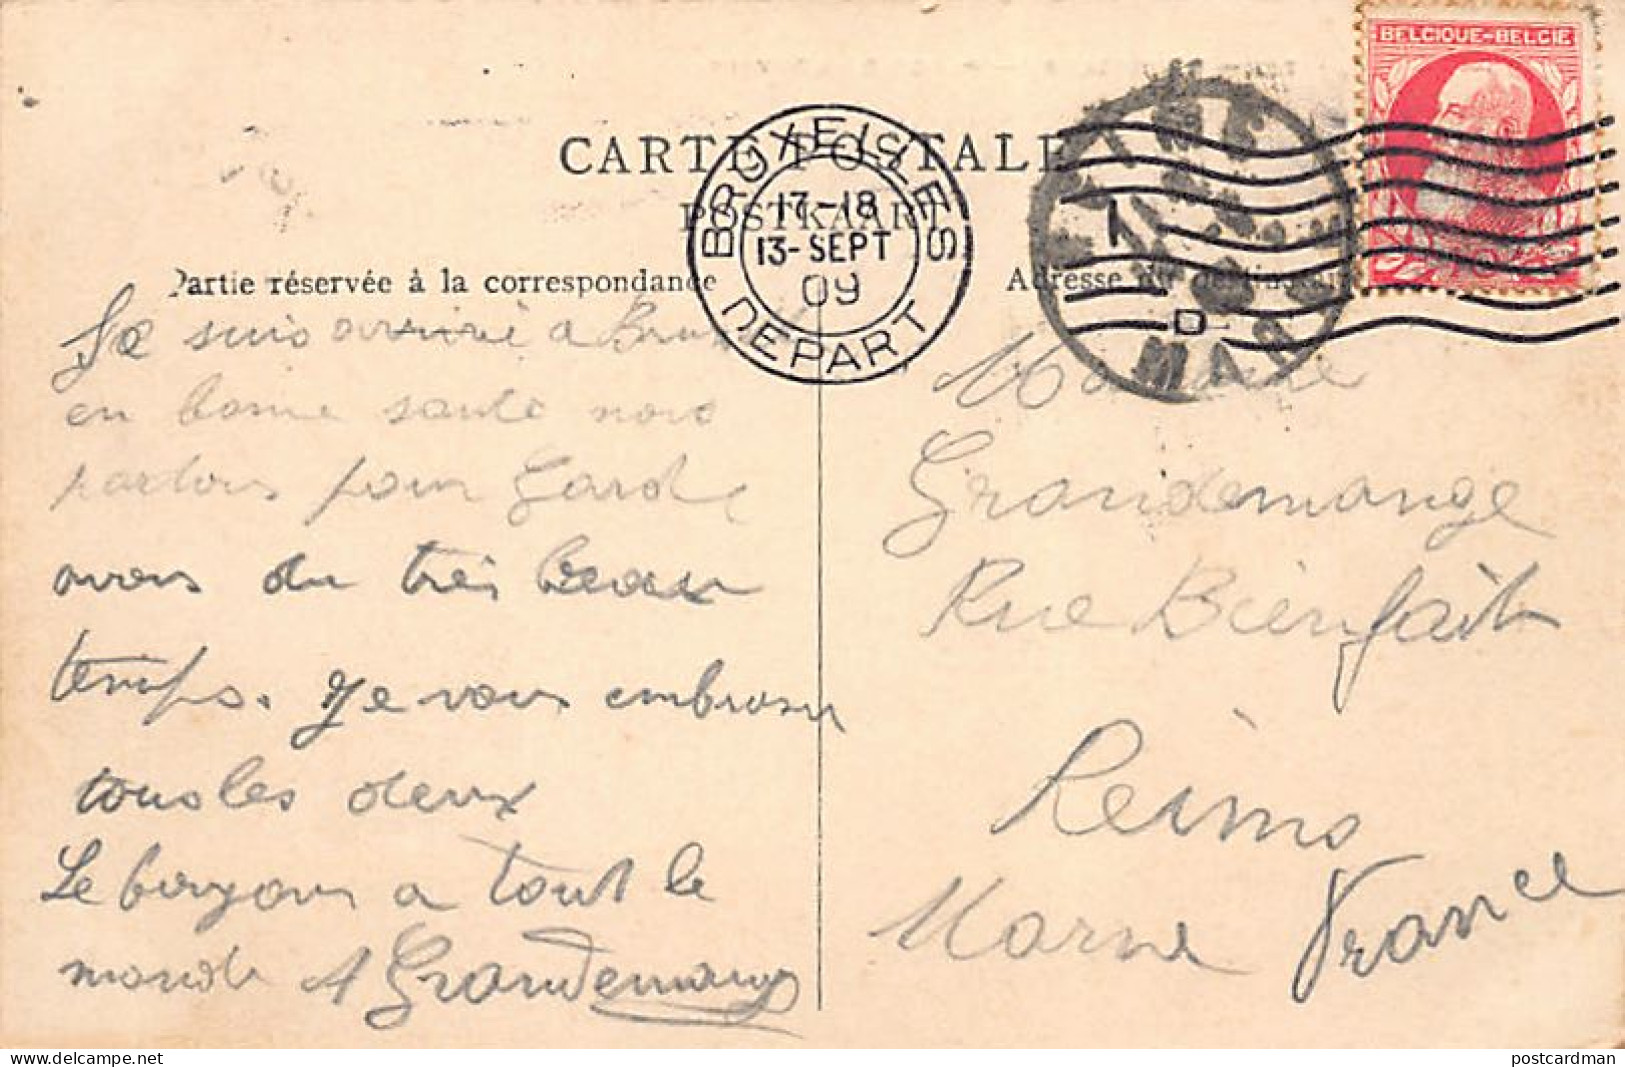 BELGIQUE-BELGIE
CARTE POSTALE
POSTKAART
BRUXELLES
17-18
13-SEPT
09
DEPART
REIMS
MAR
Partie réservée à la correspondance
Adresse du destinataire
Je suis arrivé a
en bonne santé nous
partons pour Gand
avons du très beau
temps. Je vous embrasse
tous les deux
Le bonjour a tout le
monde A Grandemange
Madame
Grandemange
Rue Bienfait
Reims
Marne France
delcampe.net
postcardman